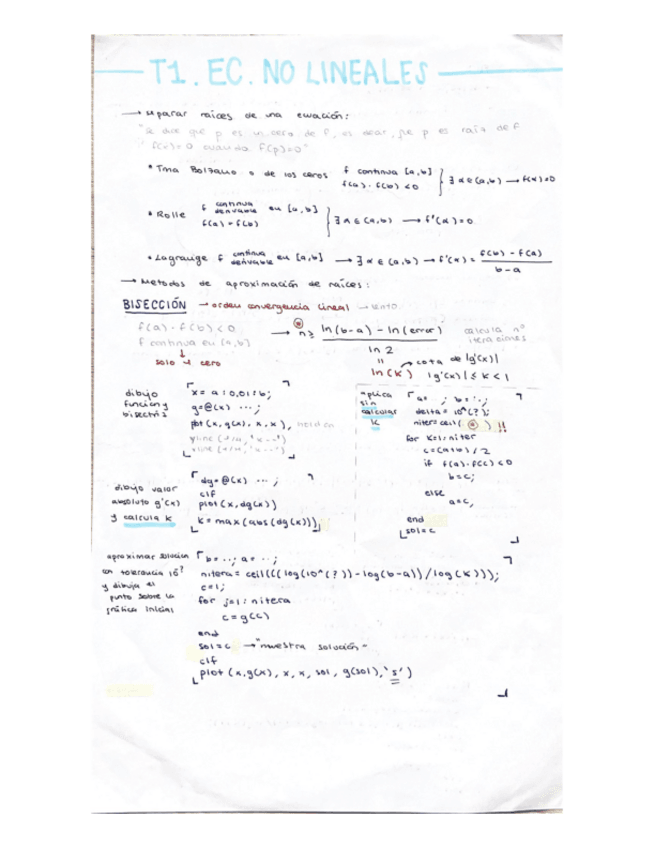 T1. EC. NO LINEALES
→ separar raíces de una ecuación:
"Se dice que p es un cero de f, es decir, que p es raíz de f
f(x)=0 cuando f(p)=0"
• Tma Bolzano o de los ceros f continua [a,b] f(a)·f(b) <0 } ∃ α ∈ (a,b) → f(α)=0
• Rolle f continua derivable en [a,b] f(a) = f(b) } ∃ α ∈ (a,b) → f'(α)=0
• Lagrange f continua derivable en [a,b] → ∃ α ∈ (a,b) → f'(α) = f(b) - f(a) / b-a
→ Metodos de aproximación de raíces:
BISECCIÓN → orden convergencia lineal → lento
f(a)·f(b) <0
f continua en [a,b]
↓
solo 1 cero
→ n ≥ ln(b-a) - ln(error) / ln 2
calcula nº iteraciones
ln(k) → cota de |g'(x)|
|g'(x)| ≤ k < 1
dibujo función y bisectriz
x = a:0,01:b;
g=@(x) ...;
plot(x, g(x), x, x), hold on
aplica sin calcular k
a= ; b= ..;
delta = 10^(?);
niter=ceil( ) !!
for k=1:niter
c=(a+b)/2
if f(a)·f(c) <0
b=c;
else
a=c;
end
sol=c
dibujo valor absoluto g'(x) y calcula k
dg=@(x) ...;
clf
plot(x,dg(x))
k = max(abs(dg(x)));
aproximar solucion con tolerancia 10^? y dibuja el punto sobre la gráfica inicial
b=..; a=..;
nitera = ceil(((log(10^(?))-log(b-a))/log(k)));
c=1;
for j=1:nitera
c=g(c)
end
sol=c → "muestra solución"
clf
plot(x,g(x), x, x, sol, g(sol),'s')